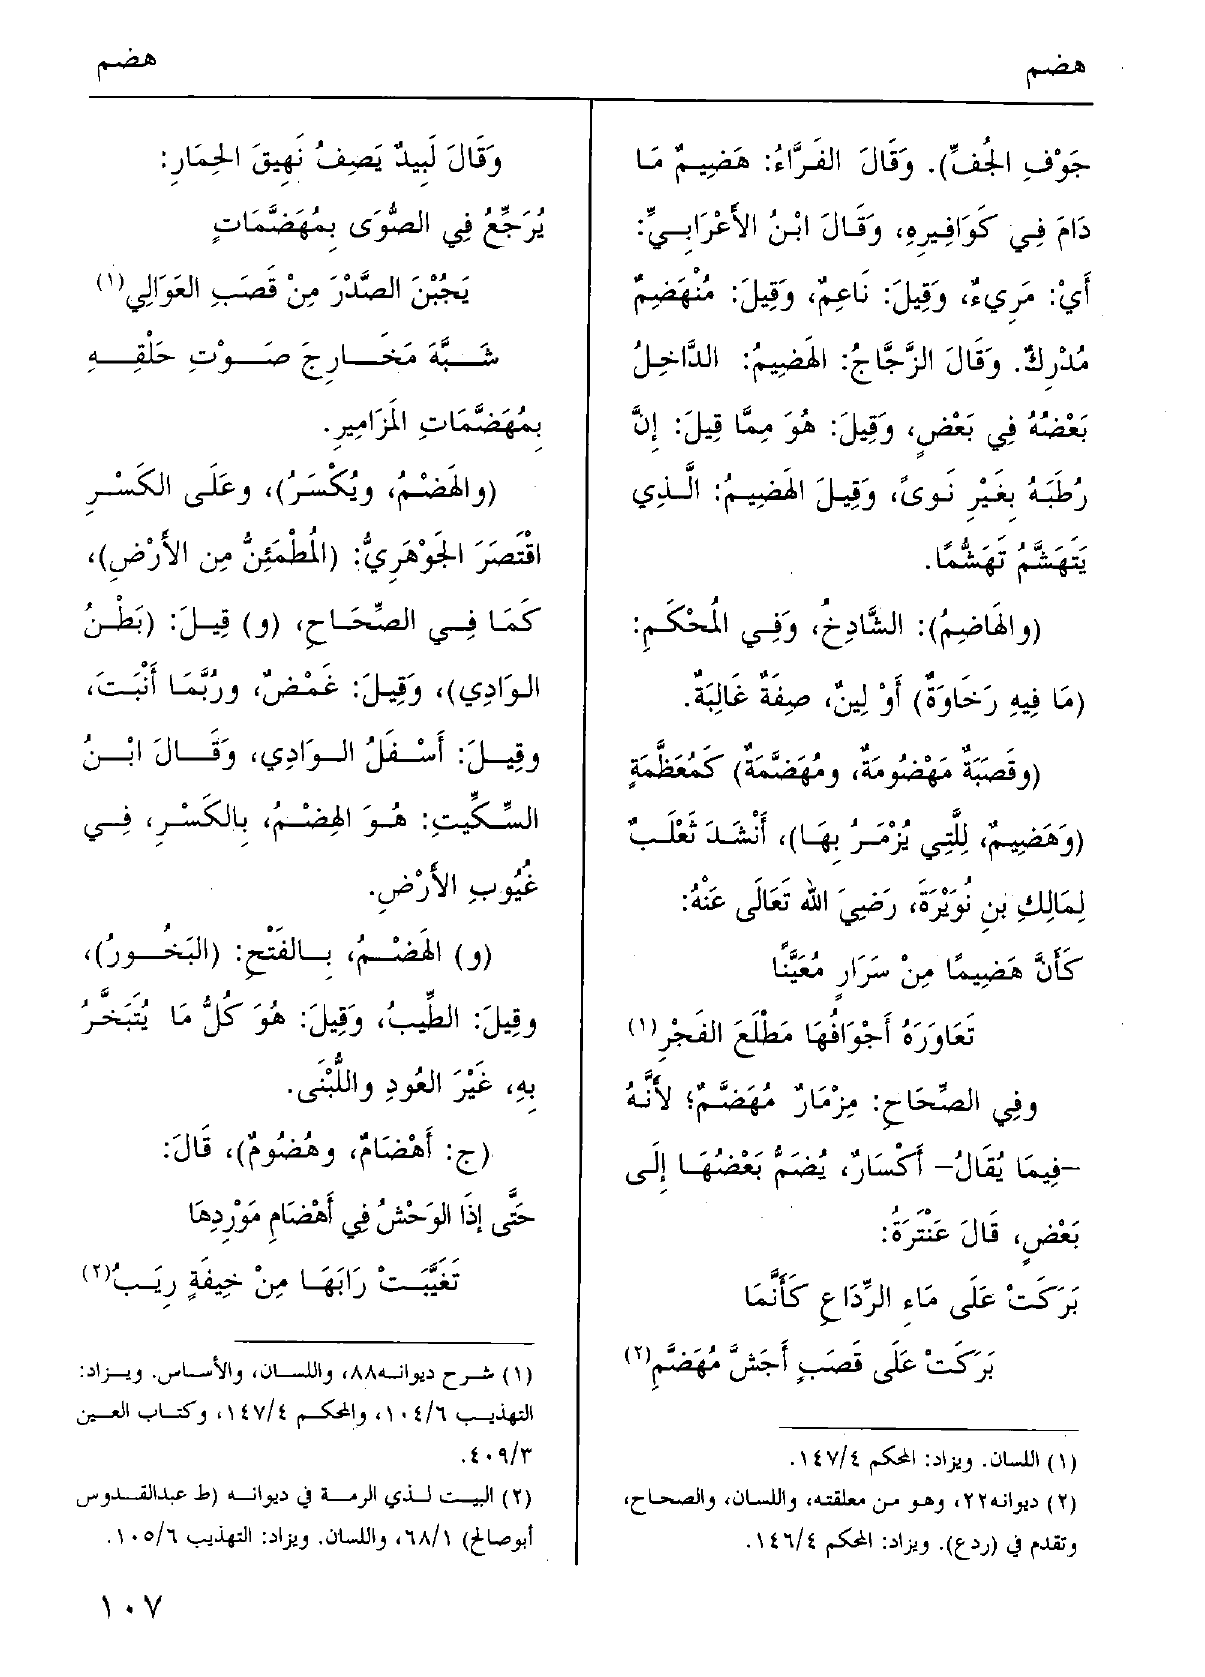 هضم
هضم
جَوْفِ الجُفِّ). وَقَالَ الفَرَّاءُ: هَضِيمٌ مَا
دَامَ فِي كَوَافِيرِهِ، وَقَالَ ابْنُ الأَعْرَابِيِّ:
أَيْ: مَرِيءٌ، وَقِيلَ: نَاعِمٌ، وَقِيلَ: مُنْهَضِمٌ
مُدْرِكٌ. وَقَالَ الزَّجَّاجُ: الهَضِيمُ: الدَّاخِلُ
بَعْضُهُ فِي بَعْضٍ، وَقِيلَ: هُوَ مِمَّا قِيلَ: إنَّ
رُطَبَهُ بِغَيْرِ نَوىً، وَقِيلَ الهَضِيمُ: الَّذِي
يَتَهَشَّمُ تَهَشُّمًا.
(والهَاضِمُ): الشَّادِخُ، وَفِي المُحْكَمِ:
(مَا فِيهِ رَخَاوَةٌ) أَوْ لِينٌ، صِفَةٌ غَالِبَةٌ.
(وقَصَبَةٌ مَهْضُومَةٌ، ومُهَضَّمَةٌ) كَمُعَظَّمَةٍ
(وَهَضِيمٌ، لِلَّتِي يُزْمَرُ بِهَا)، أَنْشَدَ ثَعْلَبٌ
لِمَالِكِ بنِ نُوَيْرَةَ، رَضِيَ الله تَعَالَى عَنْهُ:
كَأَنَّ هَضِيمًا مِنْ سَرَارٍ مُعَيَّنًا
تَعَاوَرَهُ أَجْوَافُهَا مَطْلَعَ الفَجْرِ(١)
وفِي الصِّحَاحِ: مِزْمَارٌ مُهَضَّمٌ؛ لأَنَّهُ
-فِيمَا يُقَالُ- أَكْسَارٌ، يُضَمُّ بَعْضُهَا إلَى
بَعْضٍ، قَالَ عَنْتَرَةُ:
بَرَكَتْ عَلَى مَاءِ الرِّدَاعِ كَأَنَّمَا
بَرَكَتْ عَلَى قَصَبٍ أَجَشَّ مُهَضَّمِ(٢)
(١) اللسان. ويزاد: المحكم ١٤٧/٤.
(٢) ديوانه٢٢، وهو من معلقته، واللسان، والصحاح،
وتقدم في (ردع). ويزاد: المحكم ١٤٦/٤.
وَقَالَ لَبِيدٌ يَصِفُ نَهِيقَ الحِمَارِ:
يُرَجِّعُ فِي الصُّوَى بِمُهَضَّمَاتٍ
يَجُبْنَ الصَّدْرَ مِنْ قَصَبِ العَوَالِي(١)
شَبَّهَ مَخَارِجَ صَوْتِ حَلْقِهِ
بِمُهَضَّمَاتِ المَزَامِيرِ.
(والهَضْمُ، ويُكْسَرُ)، وعَلَى الكَسْرِ
اقْتَصَرَ الجَوْهَرِيُّ: (المُطْمَئِنُّ مِن الأَرْضِ)،
كَمَا فِي الصِّحَاحِ، (و) قِيلَ: (بَطْنُ
الوَادِي)، وَقِيلَ: غَمْضٌ، ورُبَّمَا أَنْبَتَ،
وقِيلَ: أَسْفَلُ الوَادِي، وَقَالَ ابْنُ
السِّكِّيتِ: هُوَ الهِضْمُ، بِالكَسْرِ، فِي
غُيُوبِ الأَرْضِ.
(و) الهَضْمُ، بِالفَتْحِ: (البَخُورُ)،
وقِيلَ: الطِّيبُ، وَقِيلَ: هُوَ كُلُّ مَا يُتَبَخَّرُ
بِهِ، غَيْرَ العُودِ واللُّبْنَى.
(ج: أَهْضَامٌ، وهُضُومٌ)، قَالَ:
حَتَّى إذَا الوَحْشُ فِي أَهْضَامِ مَوْرِدِهَا
تَغَيَّبَتْ رَابَهَا مِنْ خِيفَةٍ رِيَبُ(٢)
(١) شرح ديوانه٨٨، واللسان، والأساس. ويزاد:
التهذيب ١٠٤/٦، والمحكم ١٤٧/٤، وكتاب العين
٤٠٩/٣.
(٢) البيت لذي الرمة في ديوانه (ط عبدالقدوس
أبوصالح) ٦٨/١، واللسان. ويزاد: التهذيب ١٠٥/٦.
١٠٧